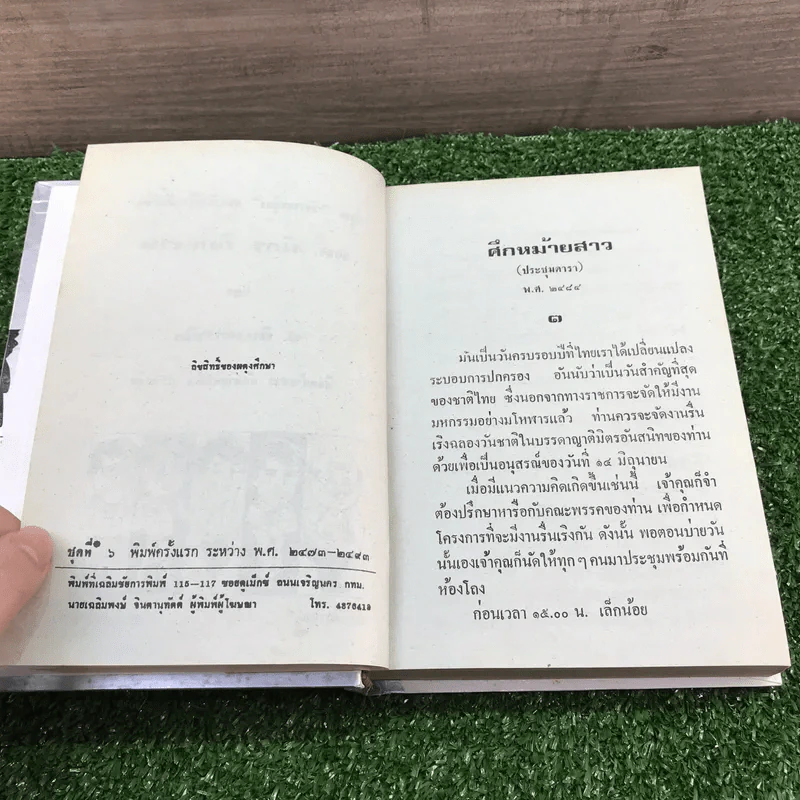 ลิขสิทธิ์ของผดุงศึกษา
ชุดที่ ๖ พิมพ์ครั้งแรก ระหว่าง พ.ศ. ๒๔๗๓-๒๔๙๓
พิมพ์ที่เฉลิมชัยการพิมพ์ 115-117 ซอยดูเม็กซ์ ถนนเจริญนคร กทม.
นายเฉลิมพงษ์ จินดานุทัตต์ ผู้พิมพ์ผู้โฆษณา โทร. 4376419
ศึกหม้ายสาว
(ประชุมดารา)
พ.ศ. ๒๔๘๔
๑
มันเป็นวันครบรอบปีที่ไทยเราได้เปลี่ยนแปลง
ระบอบการปกครอง อันนับว่าเป็นวันสำคัญที่สุด
ของชาติไทย ซึ่งนอกจากทางราชการจะจัดให้มีงาน
มหกรรมอย่างมโหฬารแล้ว ท่านควรจะจัดงานรื่น
เริงฉลองวันชาติในบรรดาญาติมิตรอันสนิทของท่าน
ด้วยเพื่อเป็นอนุสรณ์ของวันที่ ๑๔ มิถุนายน
เมื่อมีแนวความคิดเกิดขึ้นเช่นนี้ เจ้าคุณก็จำ
ต้องปรึกษาหารือกับคณะพรรคของท่าน เพื่อกำหนด
โครงการที่จะมีงานรื่นเริงกัน ดังนั้น พอตอนบ่ายวัน
นั้นเองเจ้าคุณก็นัดให้ทุกๆ คนมาประชุมพร้อมกันที่
ห้องโถง
ก่อนเวลา ๑๕.๐๐ น. เล็กน้อย